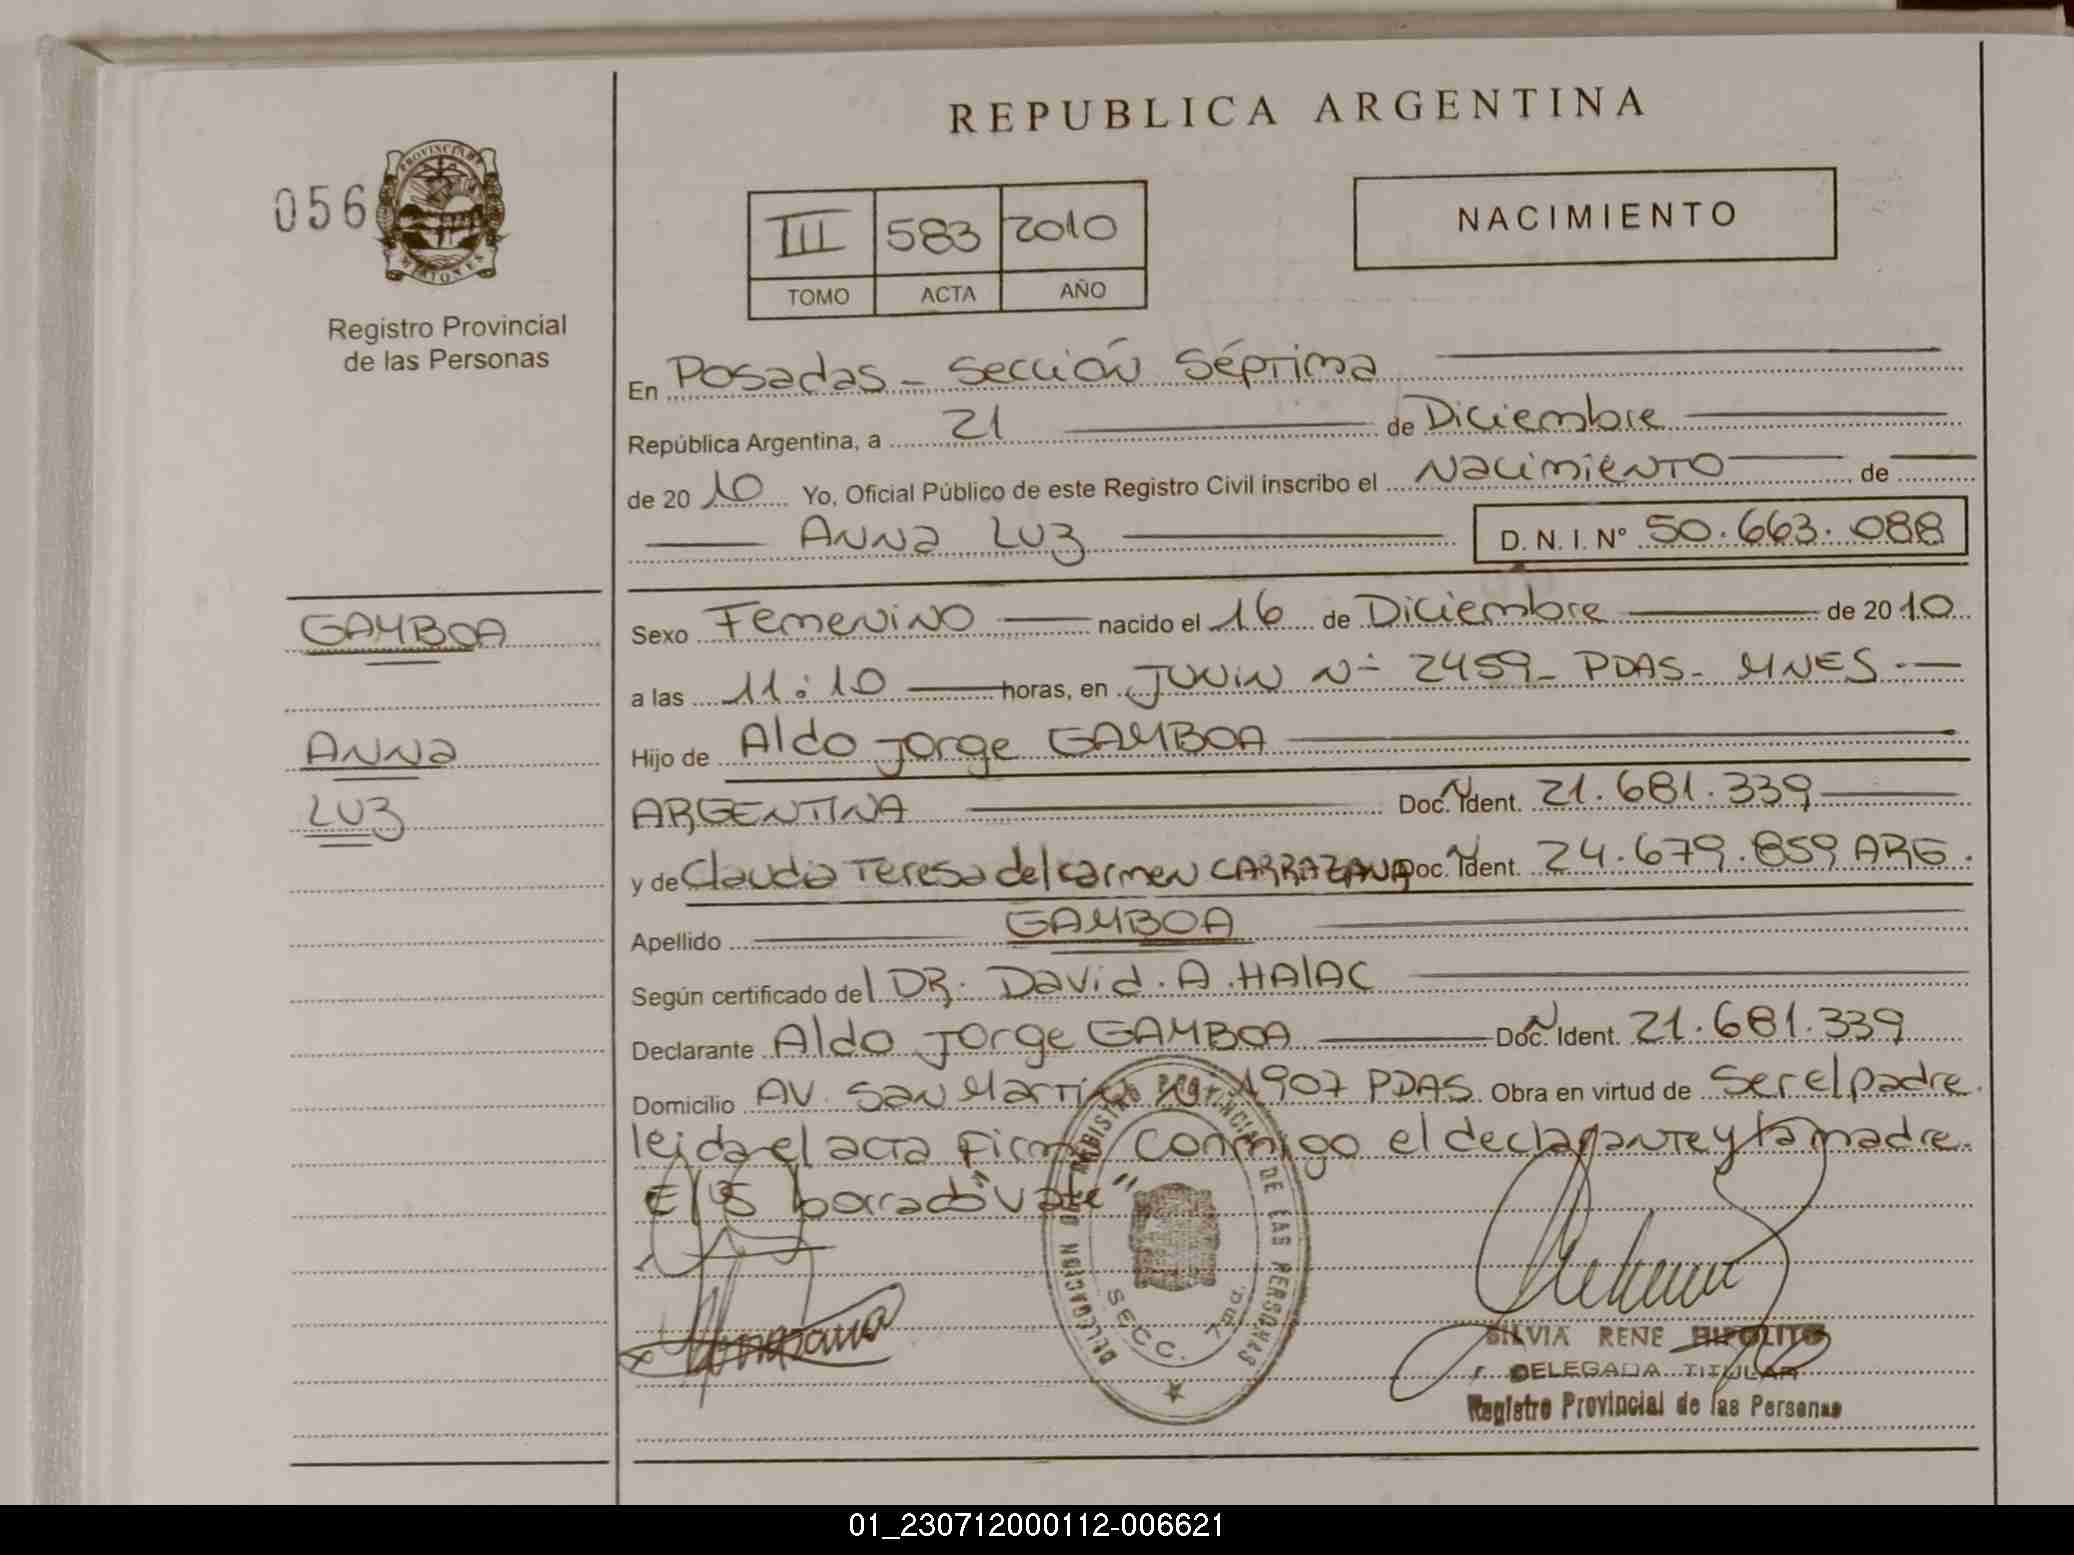 REPUBLICA ARGENTINA
056
PROVINCIA DE MISIONES
Registro Provincial
de las Personas
III 583 2010
TOMO ACTA AÑO
NACIMIENTO
En Posadas - Sección Séptima
República Argentina, a 21 de Diciembre
de 20 10 Yo, Oficial Público de este Registro Civil inscribo el Nacimiento de
Anna Luz D. N. I. N° 50.663.088
GAMBOA
Anna
Luz
Sexo Femenino nacido el 16 de Diciembre de 20 10
a las 11:10 horas, en Junin N- 2459 - PDAS - MNES.-
Hijo de Aldo Jorge GAMBOA
ARGENTINA Doc. N Ident. 21.681.339
y de Claudia Teresa del Carmen CARRAZANA Doc. N Ident. 24.679.859 ARG.
Apellido GAMBOA
Según certificado del DR. David. A. HAlAC
Declarante Aldo Jorge GAMBOA Doc. N Ident. 21.681.339
Domicilio AV. San Martín N° 1907 PDAS. Obra en virtud de Ser el padre.
leida el acta Firma Conmigo el declarante y la madre.
E/S borrado "Vale"
DELEGACION DEL REGISTRO PROVINCIAL DE LAS PERSONAS
SECC. 7ma.
SILVIA RENE HIPOLITO
DELEGADA TITULAR
Registro Provincial de las Personas
01_230712000112-006621